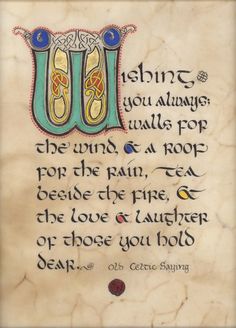 Wishing
you always:
walls for
the wind, & a roof
for the rain, tea
beside the fire, &
the love & laughter
of those you hold
dear. Old Celtic Saying